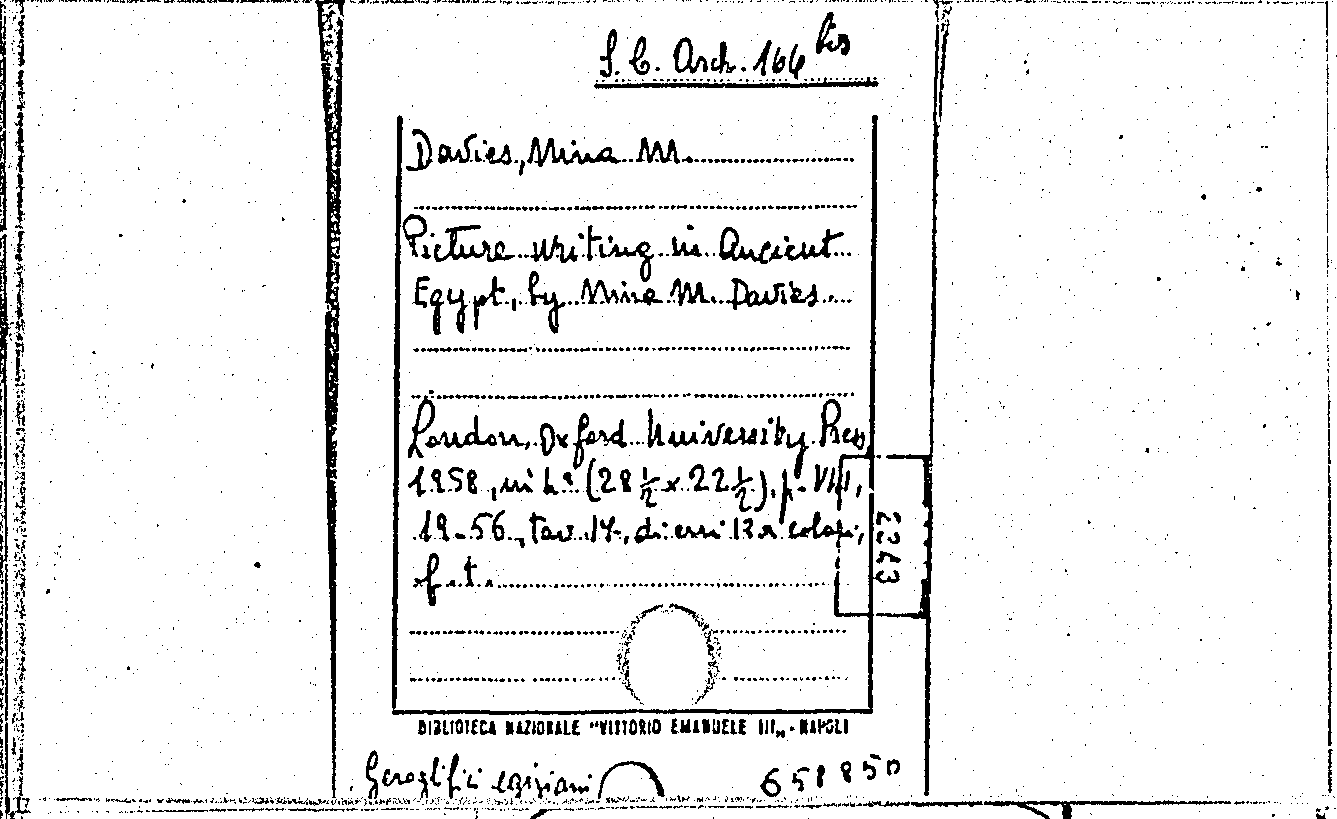 S. C. Arch. 166 bis
Davies, Nina M.
Picture writing in Ancient
Egypt, by Nina M. Davies
London, Oxford University Press,
1958, in 4° (28 ½ x 22 ½), p. VIII,
19-56, tav. 14, di cui 12 a colori,
f. t.
2243
BIBLIOTECA NAZIONALE "VITTORIO EMANUELE III„ - NAPOLI
Geroglifici egiziani
658850